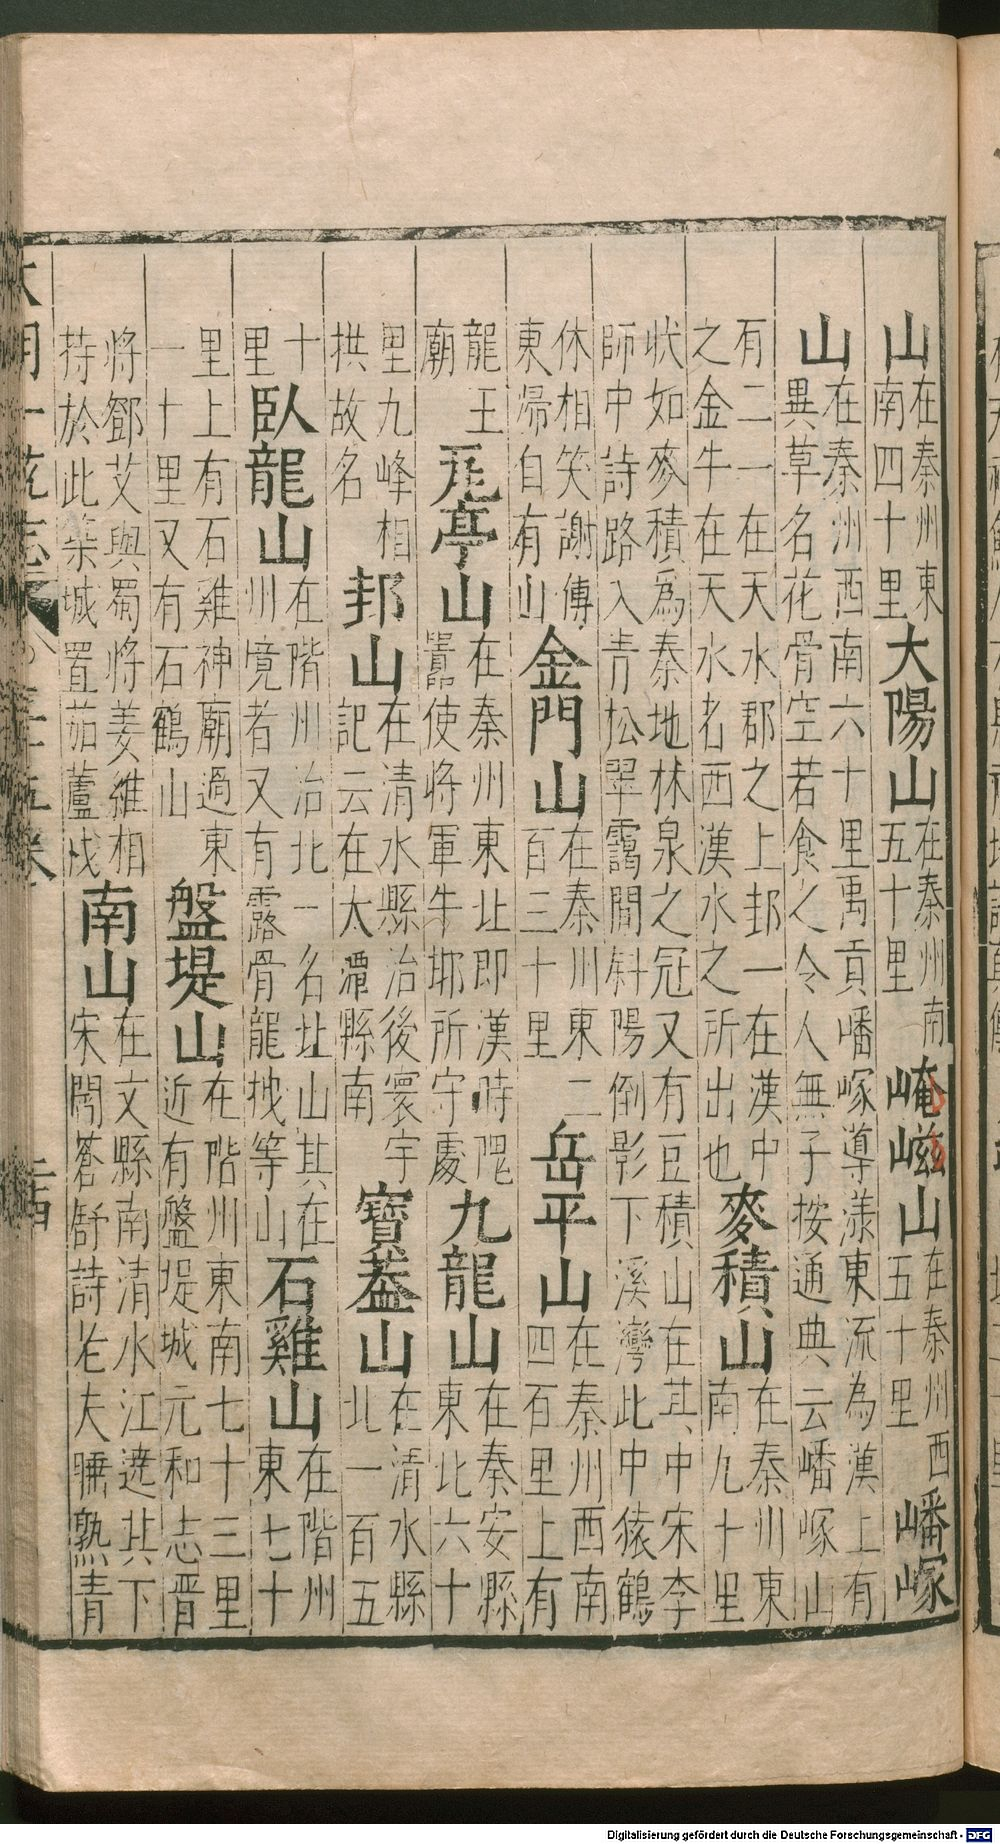 山在秦州東南四十里大陽山在秦州南五十里崦嵫山在秦州西五十里嶓冢
山在秦州西南六十里禹貢嶓冢導漾東流為漢上有異草名花骨空若食之令人無子按通典云嶓冢山
有二一在天水郡之上邽一在漢中之金牛在天水者西漢水之所出也麥積山在秦州東南九十里
狀如麥積為秦地林泉之冠又有豆積山在其中宋李師中詩路入青松翠靄間斜陽倒影下溪灣此中猿鶴
休相笑謝傅東歸自有山金門山在秦州東二百三十里岳平山在秦州西南四石里上有
龍王廟𤬪亭山在秦州東北即漢時隗囂使將軍牛邯所守處九龍山在秦安縣東北六十
里九峰相拱故名邽山在清水縣治後寰宇記云在太潭縣南寶蓋山在清水縣北一百五
十里臥龍山在階州治北一名北山其在州境者又有露骨龍拽等山石雞山在階州東七十
里上有石雞神廟過東一十里又有石鶴山盤堤山在階州東南七十三里近有盤堤城元和志晋
將鄧艾與蜀將姜維相持於此築城置茄蘆戍南山在文縣南清水江遶其下宋閻蒼舒詩老夫睡熟青
大明一統志卷之三十五
Digitalisierung gefördert durch die Deutsche Forschungsgemeinschaft - DFG